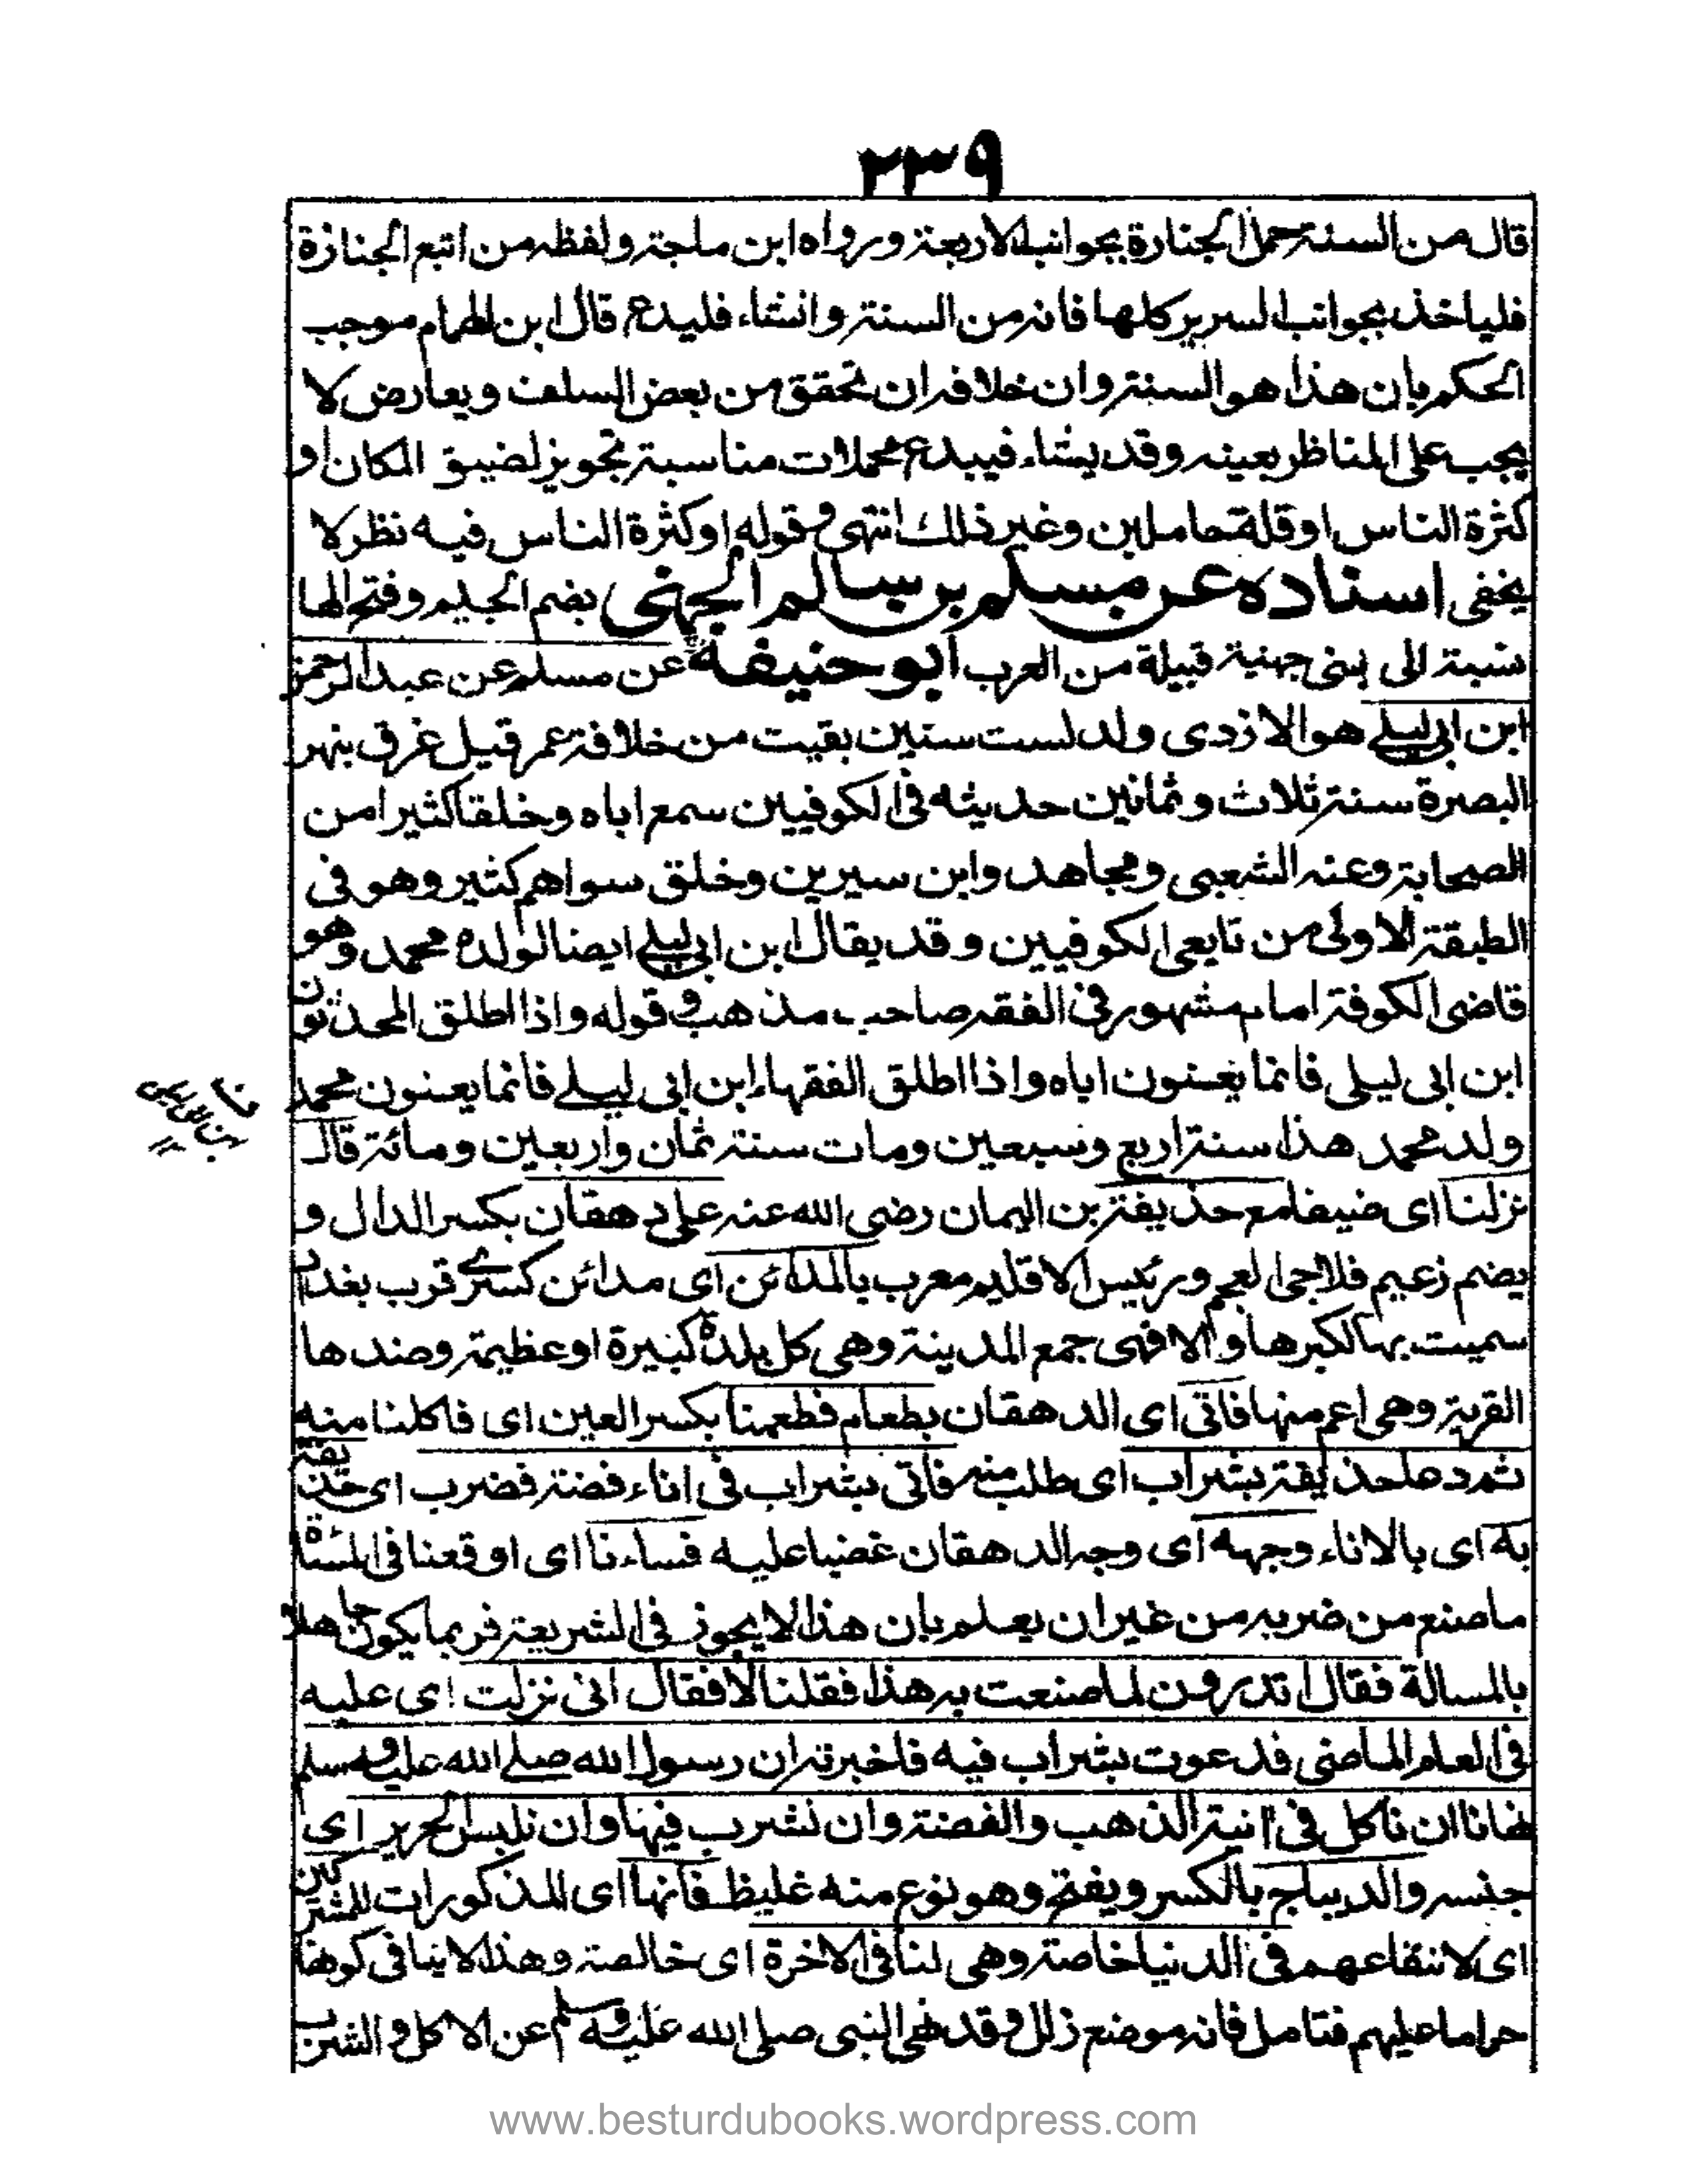 ٢٣٩
قال من السنة حمل الجنازة بجوانبها الاربعة ورواه ابن ماجة ولفظه من اتبع الجنازة
فلياخذ بجوانب السرير كلها فانه من السنة وان شاء فليدع قال ابن الهمام موجب
الحكم بان هذا هو السنة وان خلافه ان تحقق من بعض السلف ويعارض لا
يجب على المناظر بعينه وقد يشاء فيبدع محملات مناسبة تجويز لضيق المكان او
كثرة الناس او قلة حاملين وغير ذلك انتهى وقوله او كثرة الناس فيه نظر لا
يخفى اسناده عن مسلم بن سالم الجهني بضم الجيم وفتح الها
نسبة الى بنى جهنية قبيلة من العرب ابو حنيفة عن مسلم عن عبد الرحمن
ابن ابي ليلے هو الازدى ولد لست سنين بقيت من خلافة عمر قيل غرق بنهر
البصرة سنة ثلاث وثمانين حديثه فى الكوفيين سمع اباه وخلقا كثيرا من
الصحابة وعنه الشعبى ومجاهد وابن سيرين وخلق سواهم كثير وهو فى
الطبقة الاولى من تابعى الكوفيين وقد يقال ابن ابي ليلے ايضا لولده محمد وهو
قاضى الكوفة امام مشهور فى الفقه صاحب مذهب وقوله واذا اطلق المحدثون
ابن ابى ليلى فانما يعنون اباه واذا اطلق الفقهاء ابن ابى ليلے فانما يعنون محمد
ولد محمد هذا سنة اربع وسبعين ومات سنة ثمان واربعين ومائة قال
نزلنا اى ضيفا مع حذيفة بن اليمان رضى الله عنه على دهقان بكسر الدال و
يضم زعيم فلاحى العجم ورئيس الاقليم معرب بالمدائن اى مدائن كسرے قرب بغداد
سميت بها لكبرها والا فهى جمع المدينة وهى كل بلدة كبيرة او عظيمة وضدها
القرية وهى اعم منها فاتى اى الدهقان بطعام فطعمنا بكسر العين اى فاكلنا منه
ثم دعا حذيفة بشراب اى طلب منه فاتى بشراب فى اناء فضة فضرب اى حذيفة
به اى بالاناء وجهه اى وجه الدهقان غضبا عليه فساءنا اى اوقعنا فى المساة
ما صنع من ضربه من غير ان يعلم بان هذا لا يجوز فى الشريعة فربما يكون جاهلا
بالمسالة فقال اتدرون لما صنعت به هذا فقلنا لا فقال انى نزلت اى عليه
فى العام الماضى فدعوت بشراب فيه فاخبرته ان رسول الله صلے الله عليه وسلم
نهانا ان ناكل فى انية الذهب والفضة وان نشرب فيها وان نلبس الحرير اى
جنسه والديباج بالكسر ويفتح وهو نوع منه غليظ فانها اى المذكورات للمشركين
اى لانتفاعهم فى الدنيا خاصة وهى لنا فى الاخرة اى خالصة وهذا لا ينافى كونها
حراما عليهم فتامل فانه موضع زلل وقد نهى النبى صلى الله عليه وسلم عن الاكل والشرب
www.besturdubooks.wordpress.com